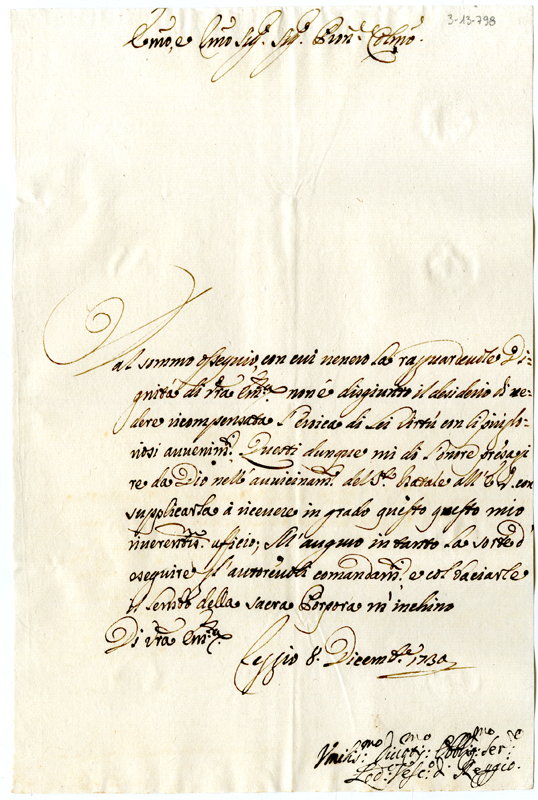 3-13-798
Emo, e Rmo Sigr. Sigr. Pron. Colmo.
Dal sommo ossequio, con cui venero la ragguardevole Di-
gnità di vra Emza non è disgiunto il desiderio di ve-
dere ricompensata l'eroica di Lei Virtù con li più glo-
riosi avvenimti. Questi dunque mi dò l'onore presagi
re da Dio nell'avvicinamto del Sto Natale all'E. V. con
supplicarla à ricevere in grado questo questo mio
riverentis. ufficio; M'auguro intanto la sorte d'
eseguire gl'autorevoli comandamti, e col baciarle
il lembo della sacra Porpora m'inchino
Di vra Emza
Reggio 8. Dicembre 1730
Umilis:mo Divot:mo Obblig:mo Ser:re
Lod:o Vesc:o di Reggio.